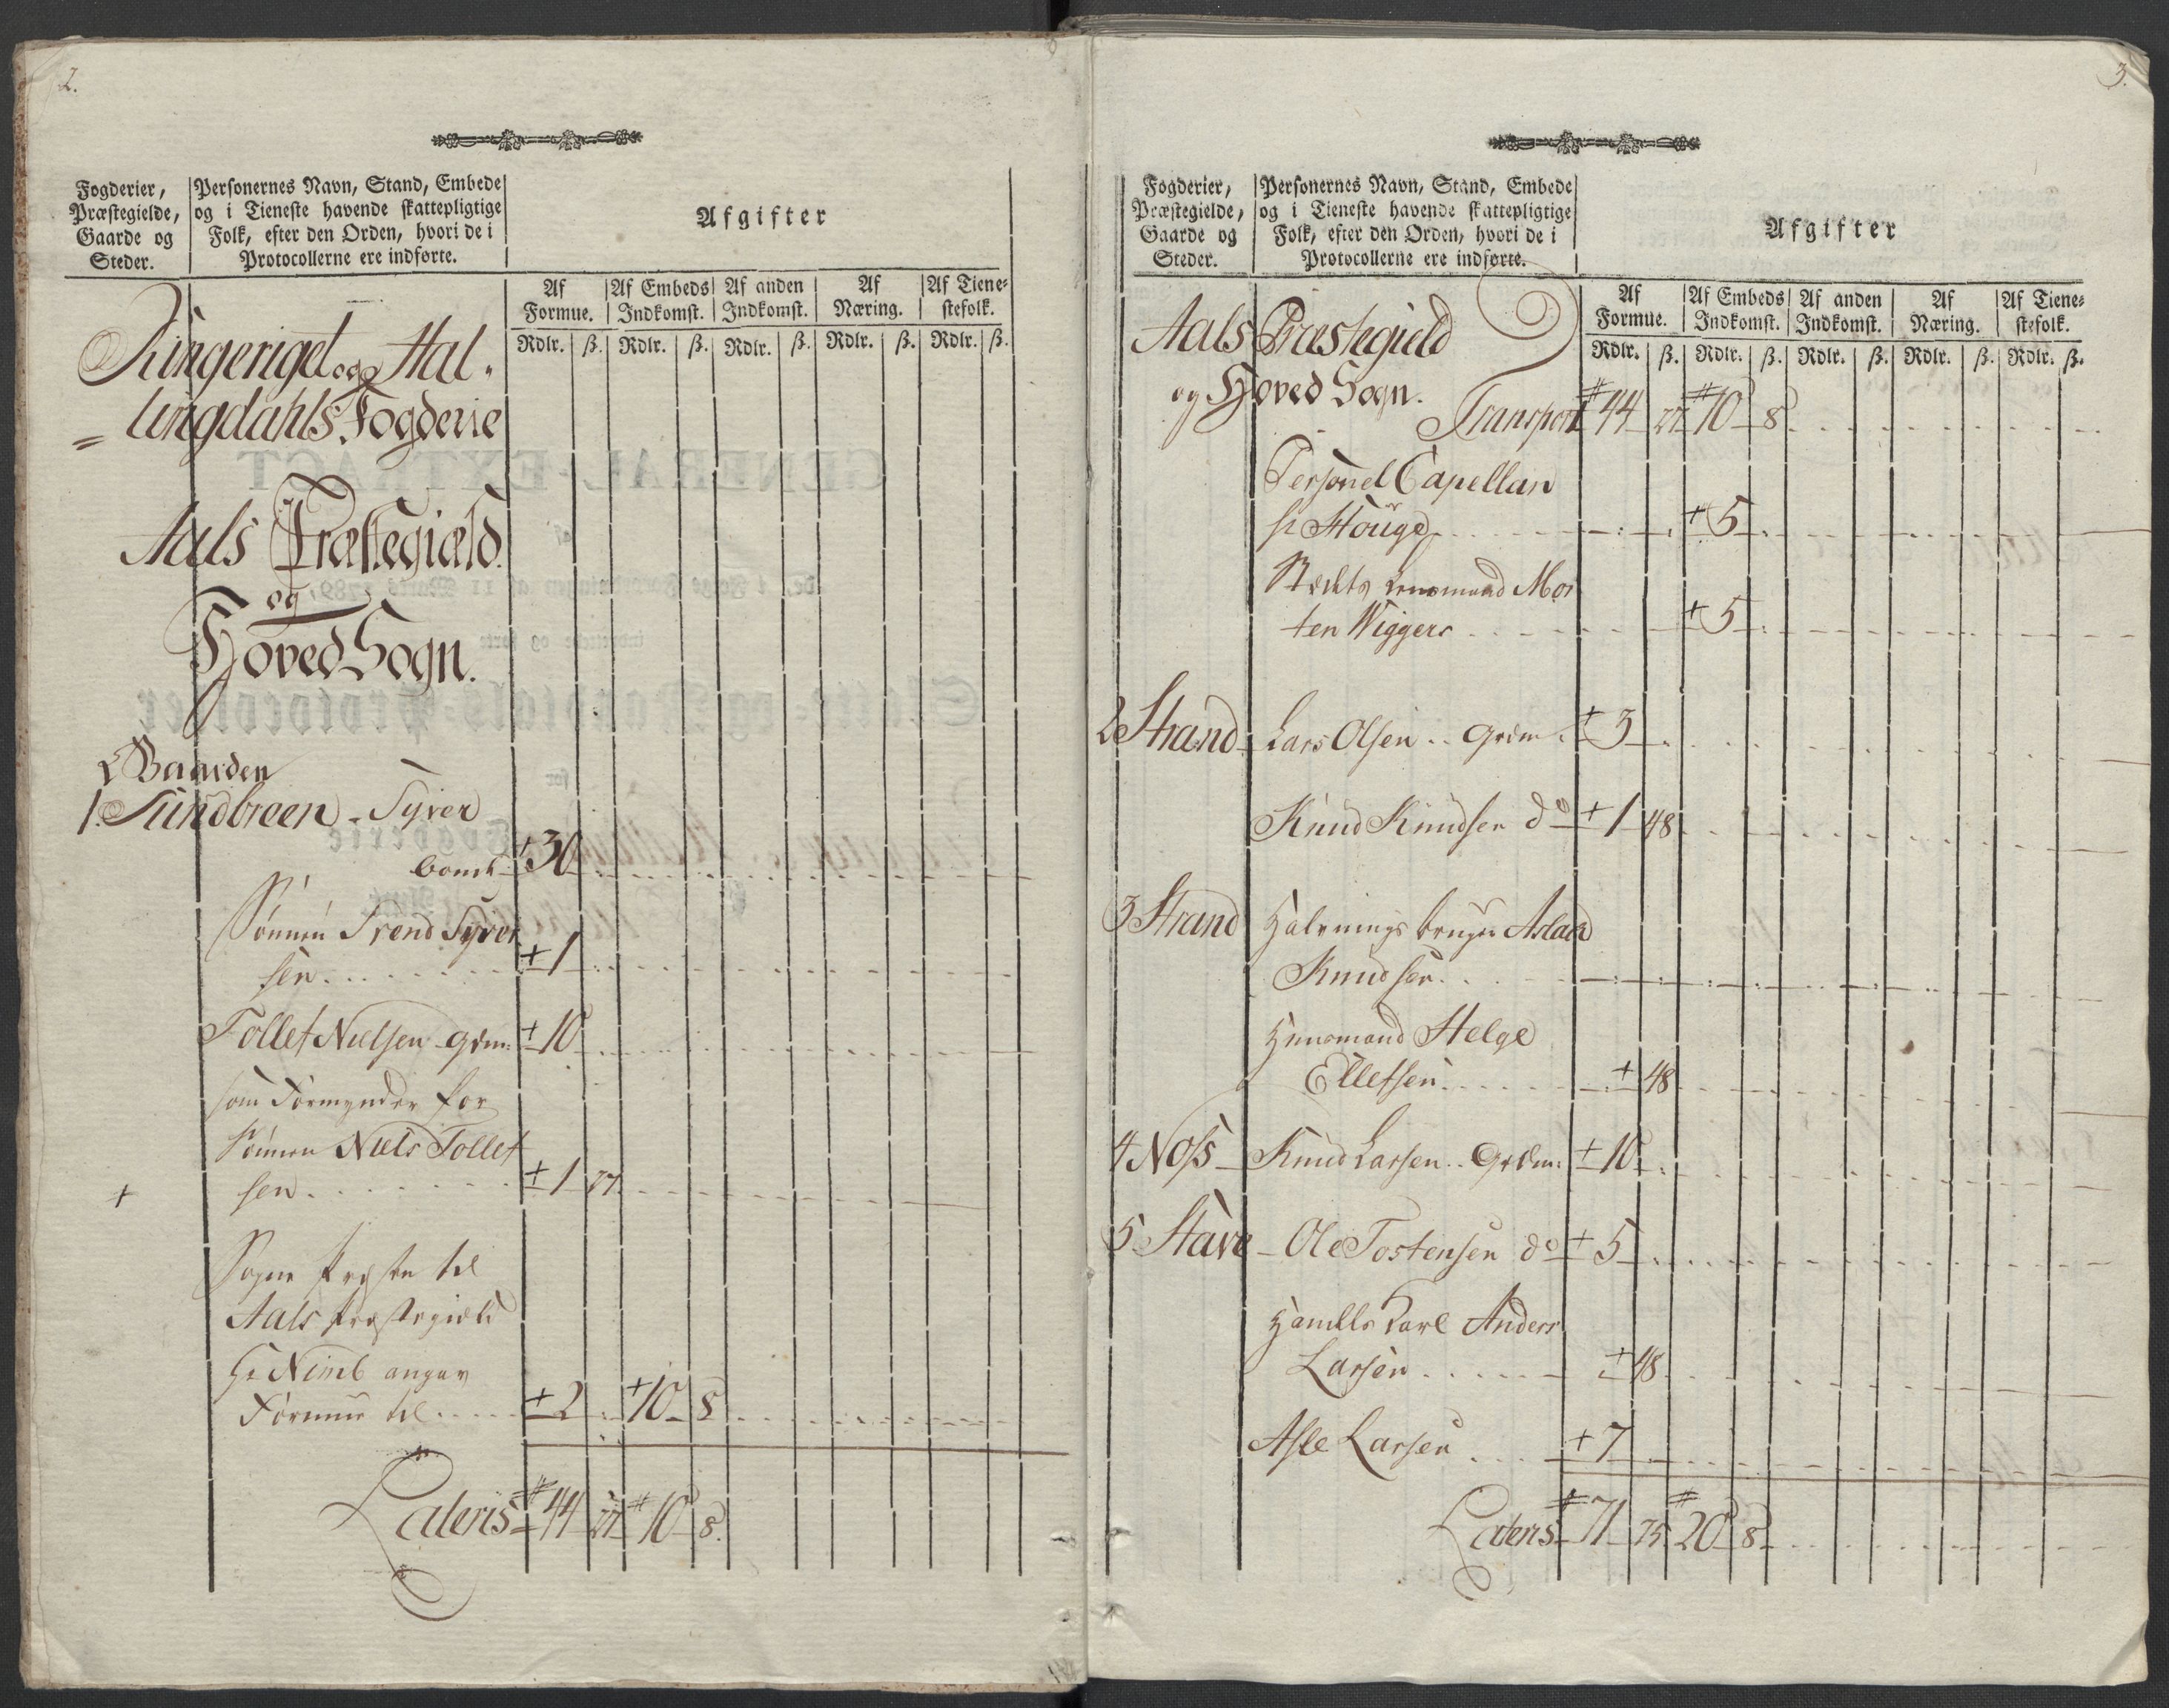 2.
Fogderier,
Præstegielde,
Gaarde og
Steder.
Personernes Navn, Stand, Embede
og i Tieneste havende skattepligtige
Folk, efter den Orden, hvori de i
Protocollerne ere indførte.
Afgifter
Af Formue. Af Embeds Indkomst. Af anden Indkomst. Af Næring. Af Tiene= stefolk.
Rdlr. ß. Rdlr. ß. Rdlr. ß. Rdlr. ß. Rdlr. ß.
Ringeriget og Hal-
= lingdahls Fogderie
Aals Præstegiæld.
og
Hoved Sogn.
Gaarden
1. Sundbreen - Syver
+ 30
Sønnen Trend Syver
sen + 1
Tollef Nielsen grdm: + 10
som Formynder for
Sønnen Niels Tollef
+ sen + 1 27
Sogne Præsten til
Aals Præstegield
Hr Nimb angav
Formue til + 2 + 10 8
Lateris # 44 27 # 10 8.
3.
Fogderier,
Præstegielde,
Gaarde og
Steder.
Personernes Navn, Stand, Embede
og i Tieneste havende skattepligtige
Folk, efter den Orden, hvori de i
Protocollerne ere indførte.
Afgifter
Af Formue. Af Embeds Indkomst. Af anden Indkomst. Af Næring. Af Tiene= stefolk.
Rdlr. ß. Rdlr. ß. Rdlr. ß. Rdlr. ß. Rdlr. ß.
Aals Præstegield
og Hoved Sogn.
Transport # 44 27 # 10 8
Personel Capellan
Hr Houge + 5
Lensmand Mor
ten Wiggers + 5
2 Strand - Lars Olsen grdm: + 3
Knud Knudsen do + 1 48
3 Strand Halvnings bruger Aslack
Knudsen
Huusmand Helge
Ellefsen + 48
4 Noss - Knud Larsen grdm: + 10
5 Stave - Ole Tostensen do + 5
Karl Anders
Larsen + 48
Asle Larsen + 7
Lateris # 71 75 # 20 8